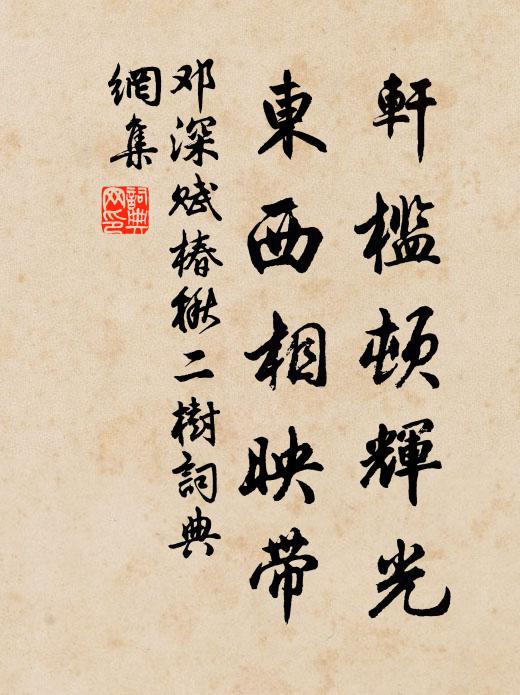 軒檻頓輝光
東西相映帶
邓深赋椿楸二樹詞典
網集
詞典
网印